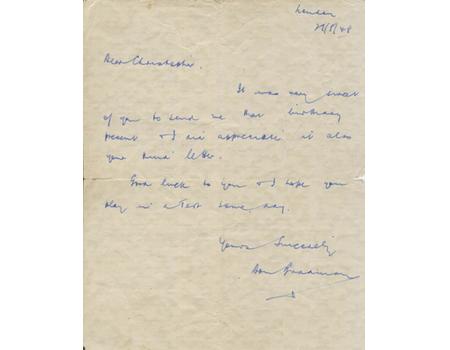 London
28/8/48
Dear Christopher.
It was very sweet
of you to send me that birthday
present & I do appreciate it also
your kind letter.
Good luck to you & I hope you
play in a Test some day.
Yours Sincerely
Don Bradman